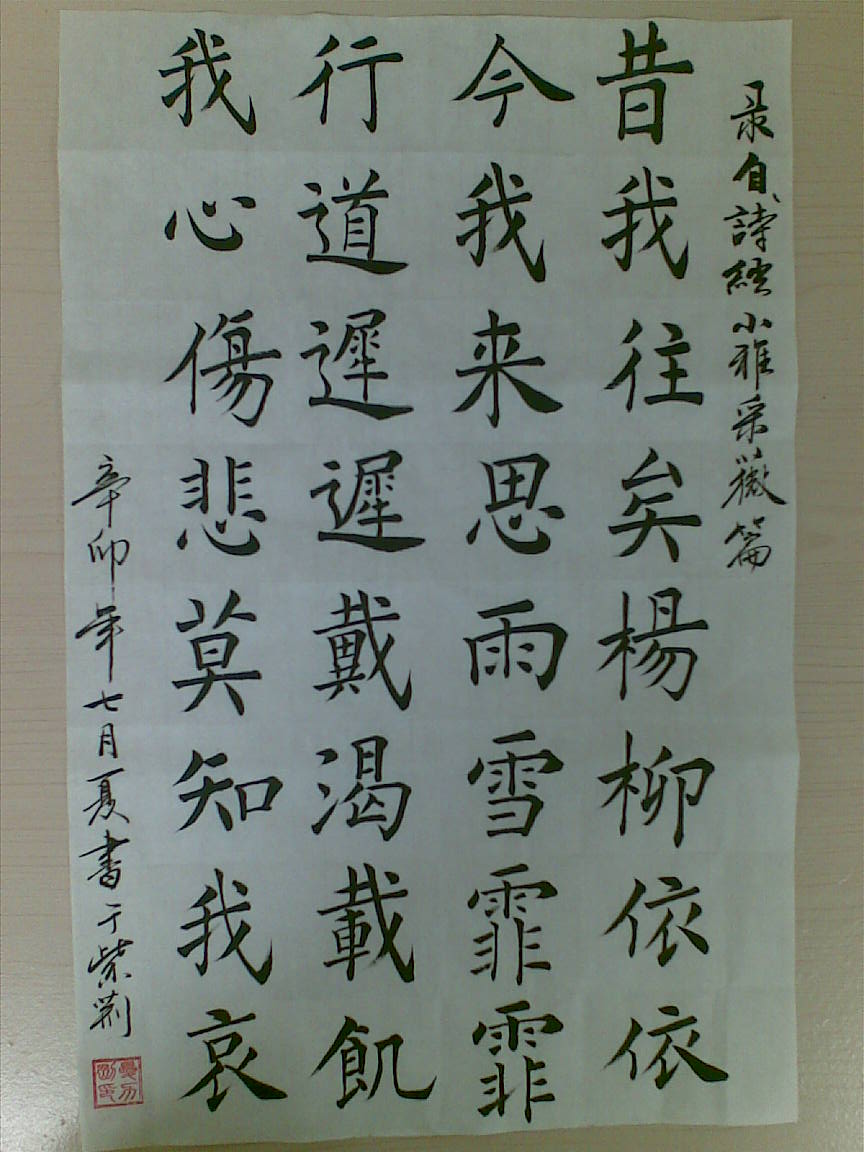 录自詩經小雅采薇篇
昔我往矣楊柳依依
今我来思雨雪霏霏
行道遲遲戴渴載飢
我心傷悲莫知我哀
辛卯年七月夏書于紫荆